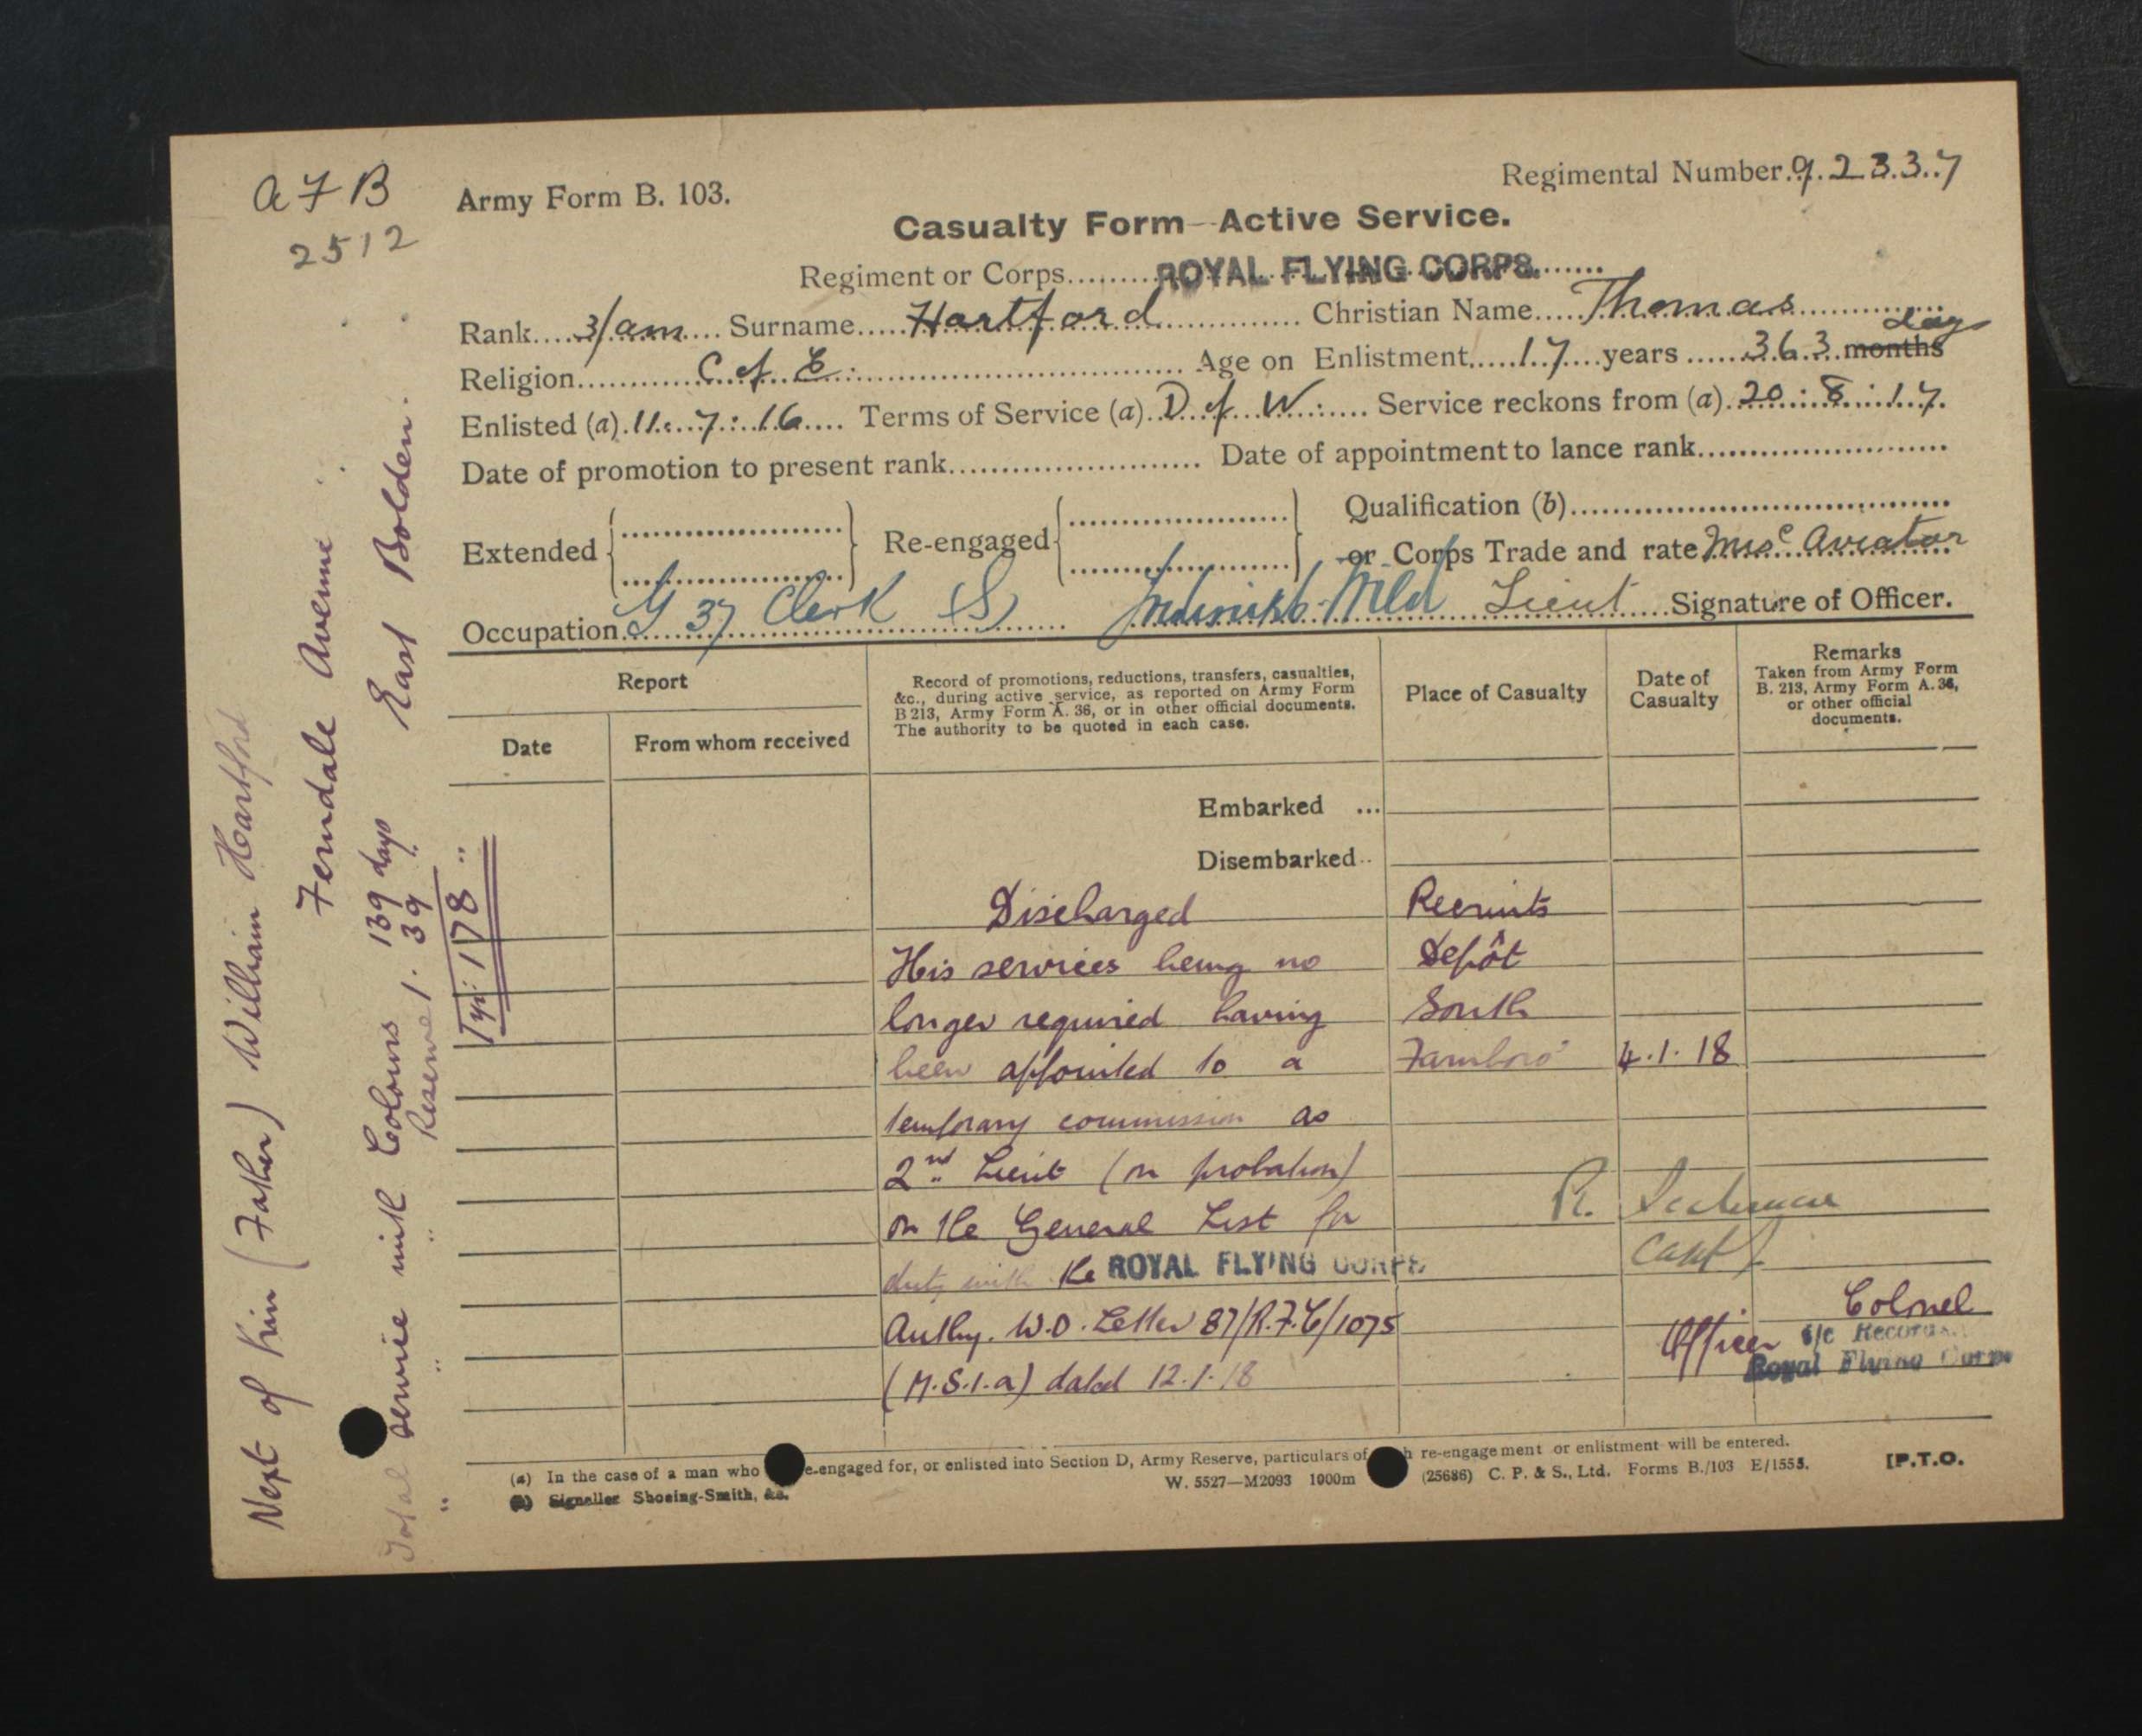 a F B
2512
Army Form B. 103.
Regimental Number. 92337
Casualty Form—Active Service.
Regiment or Corps ROYAL FLYING CORPS.
Rank 3/am Surname Hartford Christian Name Thomas
Religion C of E. Age on Enlistment 17 years 363 months days
Enlisted (a) 11.7.16 Terms of Service (a) D of W. Service reckons from (a) 20.8.17.
Date of promotion to present rank Date of appointment to lance rank
Extended Re-engaged Qualification (b)
or Corps Trade and rate Misc Aviator
Occupation G 37 Clerk (S) Lieut Signature of Officer.
Report
Date
From whom received
Record of promotions, reductions, transfers, casualties,
&c., during active service, as reported on Army Form
B 213, Army Form A. 36, or in other official documents.
The authority to be quoted in each case.
Place of Casualty
Date of
Casualty
Remarks
Taken from Army Form
B. 213, Army Form A. 36,
or other official
documents.
Embarked ...
Disembarked..
Discharged Recruits
His services being no Depôt
longer required having South
been appointed to a Farnboro' 4.1.18
temporary commission as
2nd Lieut (on probation)
on the General List for R.
duty with the ROYAL FLYING CORPS Capt
Authy. W.O. Letter 87/R.F.C/1075 Colonel
Officer i/c Records.
(M.S.1.a) dated 12.1.18 Royal Flying Corps
(a) In the case of a man who e-engaged for, or enlisted into Section D, Army Reserve, particulars of h re-engagement or enlistment will be entered.
(b) Signaller Shoeing-Smith, &c.
W. 5527—M2093 1000m (25686) C. P. & S., Ltd. Forms B./103 E/1555.
[P.T.O.
Next of Kin (Father) William Hartford
Ferndale Avenue
East Bolden.
Total service with Colours 139 days
" " " Reserve 1. 39
178 "